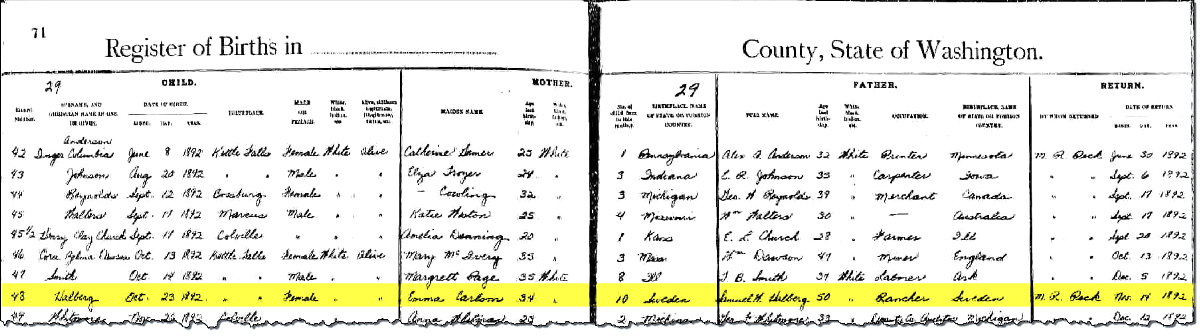 71
Register of Births in County, State of Washington.
29 CHILD. MOTHER. 29 FATHER. RETURN.
SURNAME, AND DATE OF BIRTH. MALE White, Age White, No. of BIRTHPLACE NAME Age White, BIRTHPLACE NAME DATE OF RETURN
CHRISTIAN NAME IF ONE BIRTHPLACE. OR MAIDEN NAME. last child OF STATE OR FOREIGN FULL NAME. last OCCUPATION. OF STATE OR FOREIGN BY WHOM RETURNED
BE GIVEN. DAY. YEAR. FEMALE. COUNTRY. COUNTRY. DAY. YEAR
Anderson
42 Columbia June 8 1892 Kettle Falls Female White Alive Catherine 25 White 1 Pennsylvania Alex A Anderson 32 White Minnesota M. R. Peck June 30 1892
43 Johnson Aug 20 1892 " " Male " " Eliza 24 " 3 Indiana E. R. Johnson 35 " Carpenter Iowa " " Sept. 6 1892
44 Reynolds Sept. 12 1892 Bossburg Female " " — Cowling 32 " 3 Michigan Geo. W Reynolds 39 " Merchant Canada " " Sept. 17 1892
45 Walters Sept. 11 1892 Marcus Male " " Katie 25 " 4 Missouri Wm Walters 30 " — Australia " " Sept 17 1892
45 1/2 Henry Clay Church Sept. 11 1892 Colville " " " Amelia 20 " 1 Kans E. L. Church 28 " Farmer Ill " " Sept 20 1892
46 Cora Dawson Oct. 13 1892 Kettle Falls Female White Alive Mary 35 " 3 Mass Wm Dawson 47 " Miner England " " Oct 13 1892
47 Smith Oct. 14 1892 " " Male " " Margrett Page 35 White 8 Ill J. B. Smith 37 White Laborer Ark " " Dec. 5 1892
48 Walberg Oct. 23 1892 " " Female " " Emma Carlson 34 " 10 Sweden Samuel H. Walberg 50 " Rancher Sweden M. R. Peck Nov. 14 1892
49 Whitmore 1892 Colville Anna 25 2 Michigan Whitmore 33 Michigan Dec. 12 1892